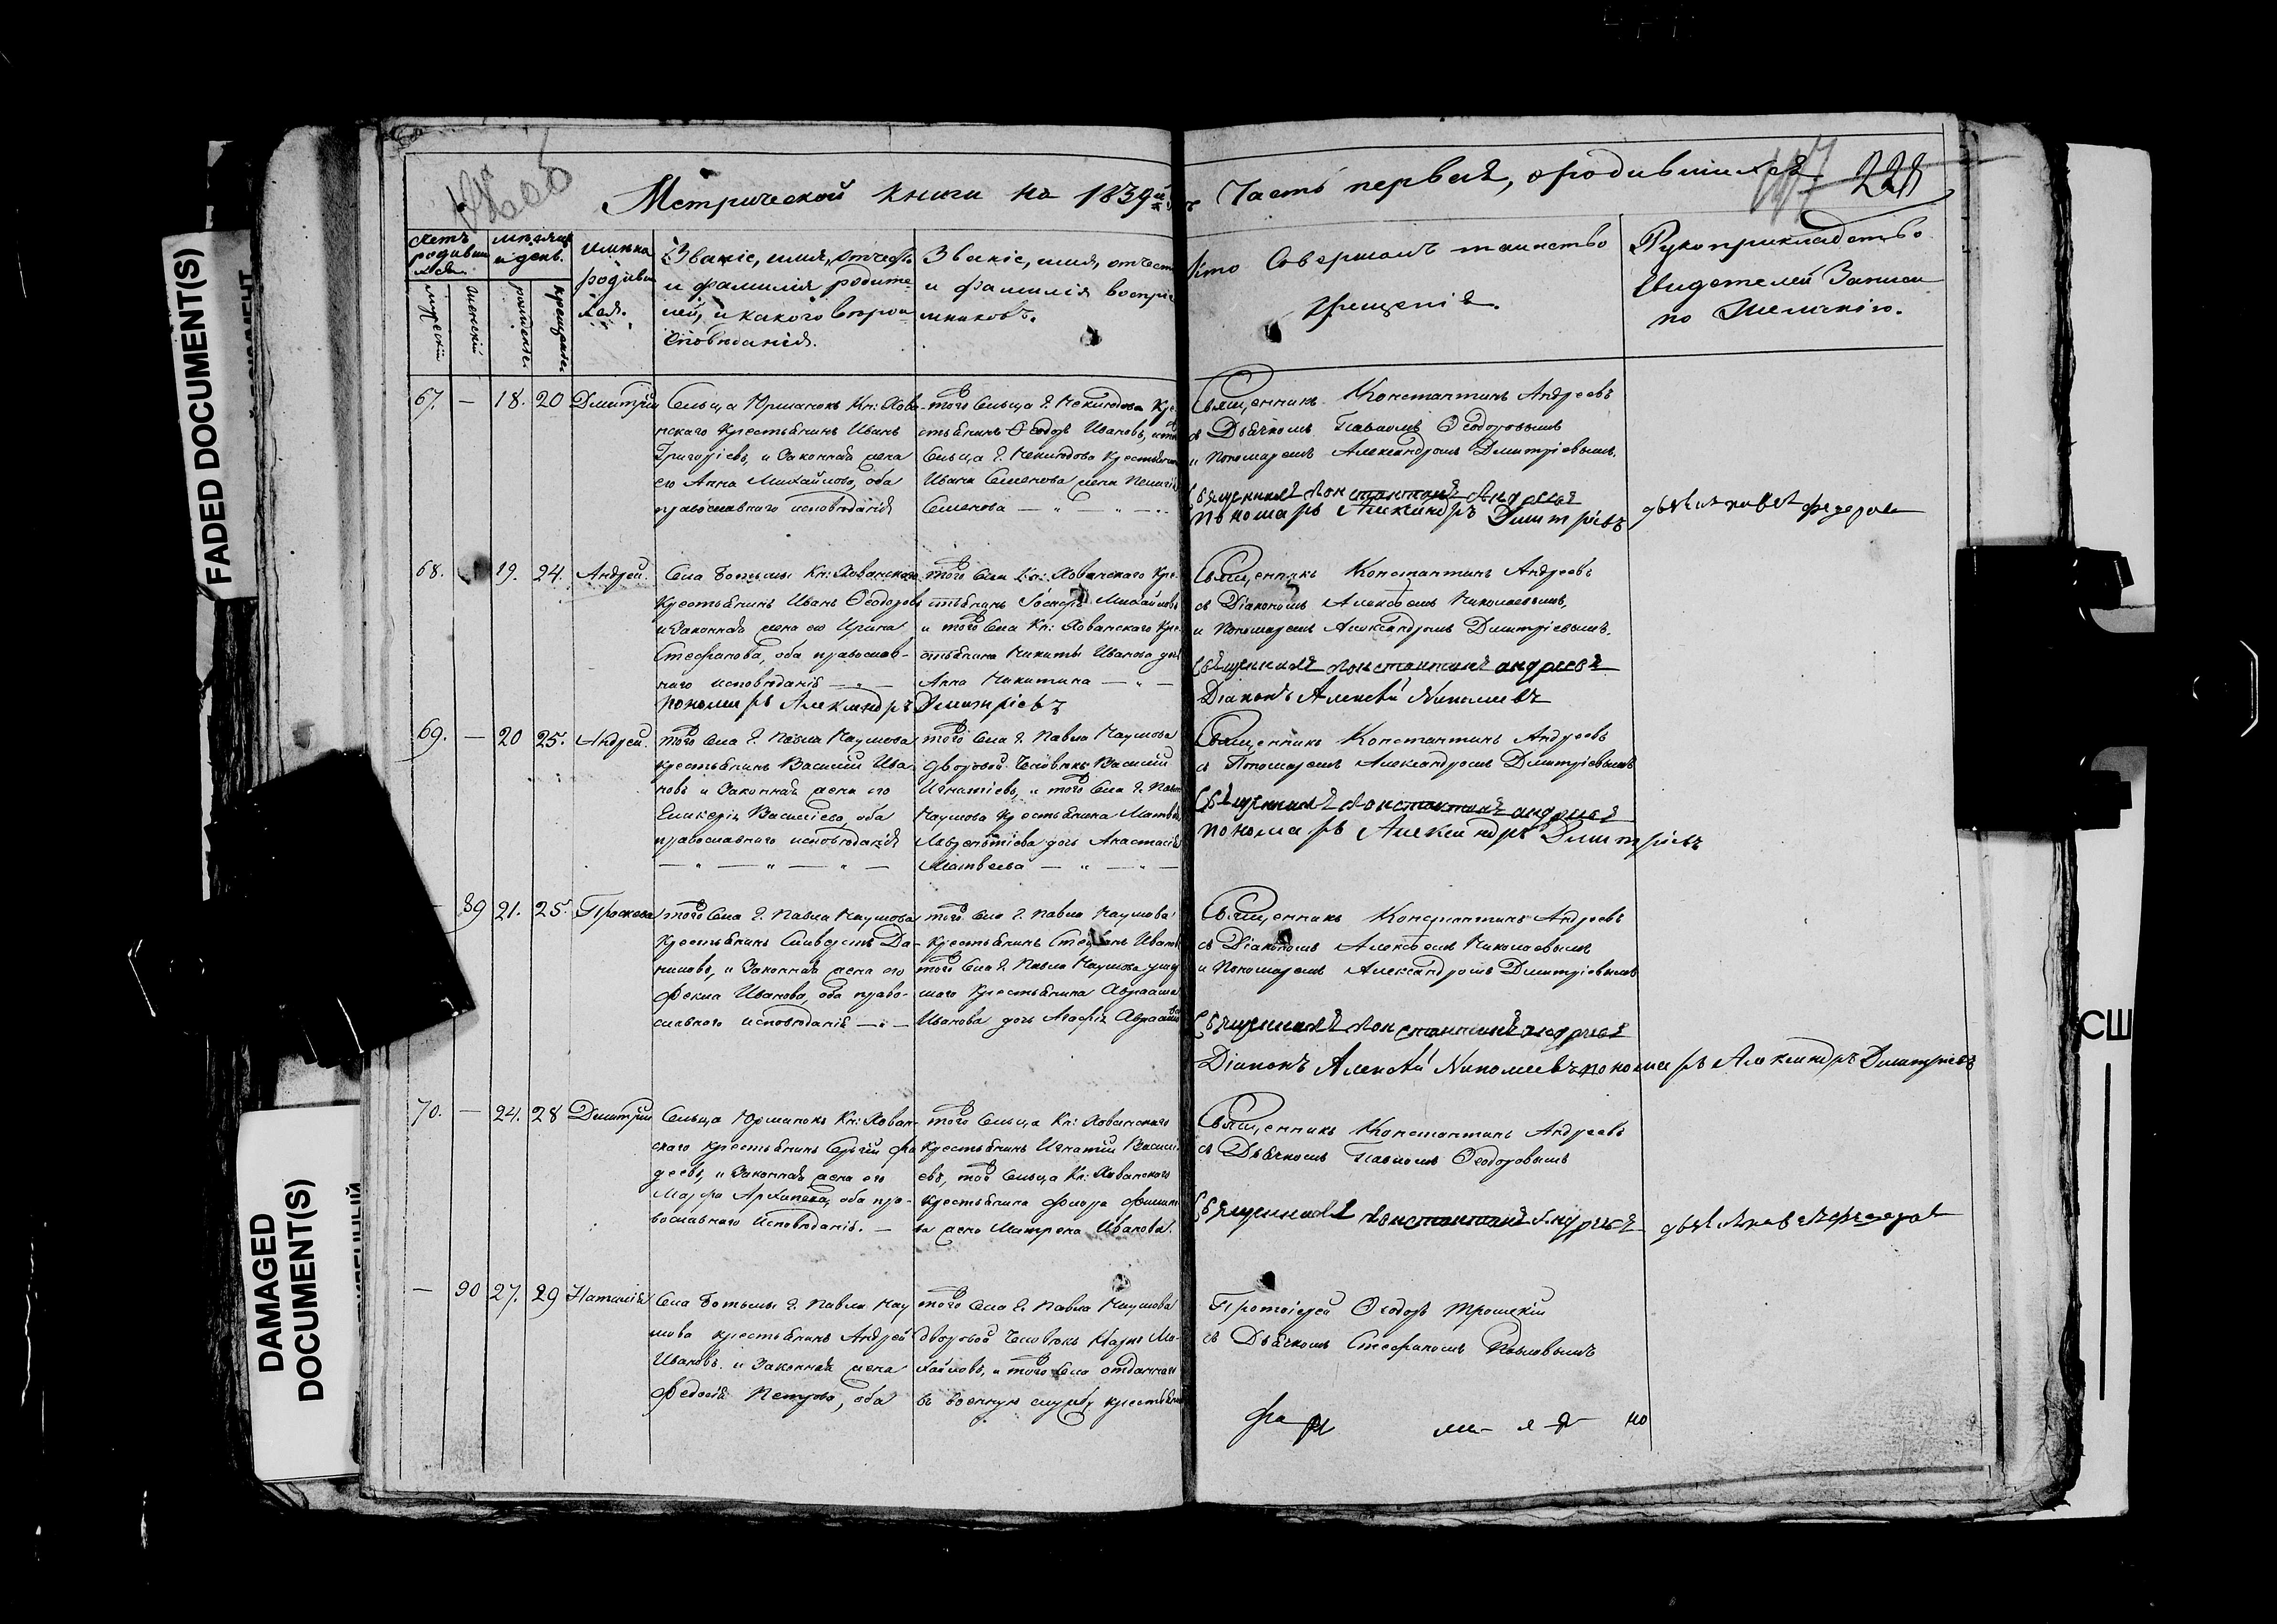 FADED DOCUMENT(S)
DAMAGED
DOCUMENT(S)
СШ
Метрической книги на 1839й
Часть первая, о родившихся.
228
Счетъ родившихся
мужескій
женскій
мѣсяцъ и день.
рожденія
крещенія
Имѣна родившихся.
Званіе, имя, отчество
и фамилія родите-
лей, и какого вѣрои
споведанія.
Званіе, имя, отчест
и фамилія воспріе
мниковъ.
Кто совершалъ таинство
крещенія.
Рукоприкладство
свидетелей записи
по желанію.
67. — 18. 20 Димитрій
Сельца Юрманокъ Кн: Хова-
нскаго крестьянинъ Иванъ
Григоріевъ, и законная жена
его Анна Михайлова, оба
православнаго исповѣданія
того сельца г. Неклюдова кре
стьянинъ Ѳеодоръ Ивановъ,
сельца г. Неклюдова крестьянина
Ивана Семенова жена
Семенова
Священникъ Константинъ Андреевъ
съ Дьячкомъ Павломъ Ѳеодоровымъ
и Пономаремъ Александромъ Димитріевымъ.
Священникъ Константинъ Андреевъ
пономарь Александръ Димитріевъ
68. 19. 24. Андрей.
Села Ботьмы Кн: Хованскаго
крестьянинъ Иванъ Ѳеодоровъ
и законная жена его Ирина
Стефанова, оба православ-
наго исповѣданія
того села Кн: Хованскаго кре-
стьянинъ Іосифъ Михайловъ
и того села Кн: Хованскаго кре-
стьянина Никиты Иванова дочь
Анна Никитина
Священникъ Константинъ Андреевъ
съ Діакономъ Алексѣемъ Николаевымъ,
и Пономаремъ Александромъ Димитріевымъ.
Священникъ Константинъ Андреевъ
Діаконъ Алексѣй Николаевъ
пономарь Александръ Димитріевъ
69. — 20 25. Андрей.
того села г. Павла Наумова
крестьянинъ Василій Ива-
новъ и законная жена его
Гликерія Василіева, оба
православнаго исповѣданія
того села г. Павла Наумова
дворовой человѣкъ Василій
Игнатіевъ, и того села г. Павла
Наумова крестьянина Матвѣя
Лаврентіева дочь Анастасія
Матвеева
Священникъ Константинъ Андреевъ
съ Пономаремъ Александромъ Димитріевымъ
Священникъ Константинъ Андреевъ
пономарь Александръ Димитріевъ
— 89 21. 25.
того села г. Павла Наумова
крестьянинъ Сильвестръ Да-
ниловъ, и законная жена его
Фекла Иванова, оба право-
славнаго исповѣданія
того села г. Павла Наумова
крестьянинъ Стефанъ Ивановъ
того села г. Павла Наумова умер
шаго крестьянина Авраама
Иванова дочь Агафія Авраамова
Священникъ Константинъ Андреевъ
съ Діакономъ Алексѣемъ Николаевымъ
и Пономаремъ Александромъ Димитріевымъ
Священникъ Константинъ Андреевъ
Діаконъ Алексѣй Николаевъ пономарь Александръ Димитріевъ
70. — 24. 28 Димитрій
Сельца Юрманокъ Кн: Хован-
скаго крестьянинъ Сергій Фа
деевъ, и законная жена его
Марфа Архипова, оба пра-
вославнаго исповѣданія. —
того сельца Кн: Хованскаго
крестьянинъ Игнатій Василі-
евъ, того сельца Кн: Хованскаго
крестьянина Филип
ва жена Матрена Иванова.
Священникъ Константинъ Андреевъ
съ Дьячкомъ Павломъ Ѳеодоровымъ
Священникъ Константинъ Андреевъ
— 90 27. 29 Наталія
Села Ботьмы г. Павла Нау
мова крестьянинъ Андрей
Ивановъ и законная жена
Федосія Петрова, оба
того села г. Павла Наумова
дворовой человѣкъ Карпъ Ми-
хайловъ, и того села отданнаго
въ военную службу крестьянина
Протоіерей Ѳеодоръ Троицкій
съ Дьячкомъ Стефаномъ Павловымъ